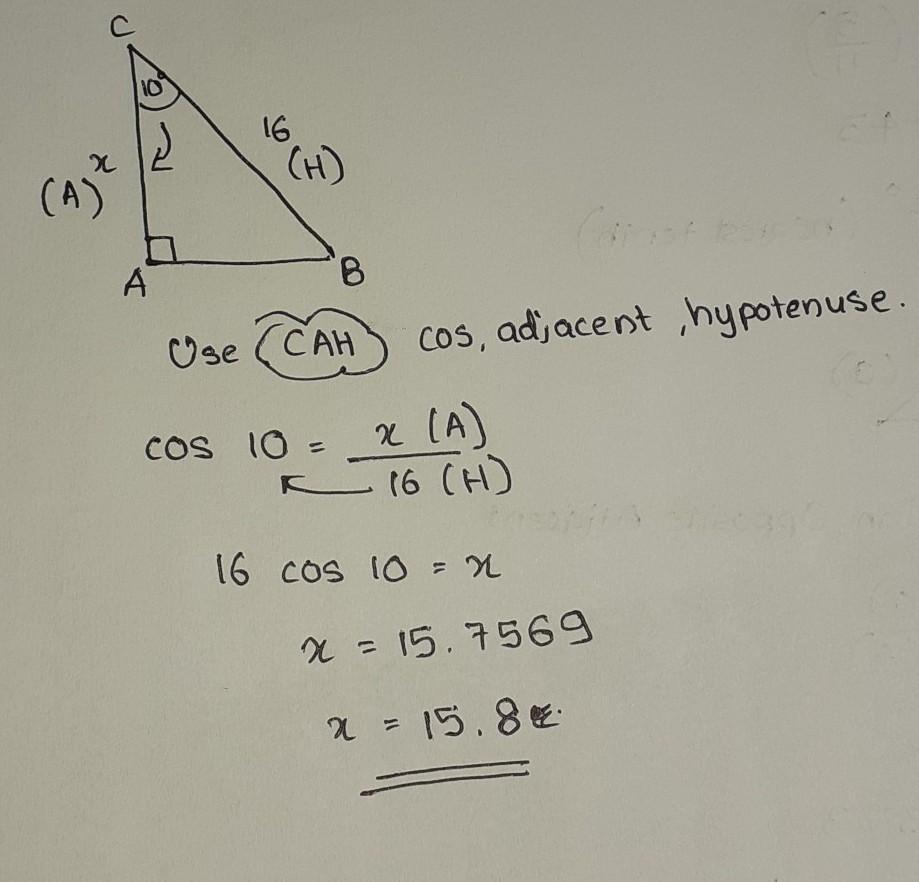 C
10°
16
(H)
x
(A)
A
B
Use CAH cos, adjacent, hypotenuse.
cos 10 = x (A)
16 (H)
16 cos 10 = x
x = 15.7569
x = 15.8